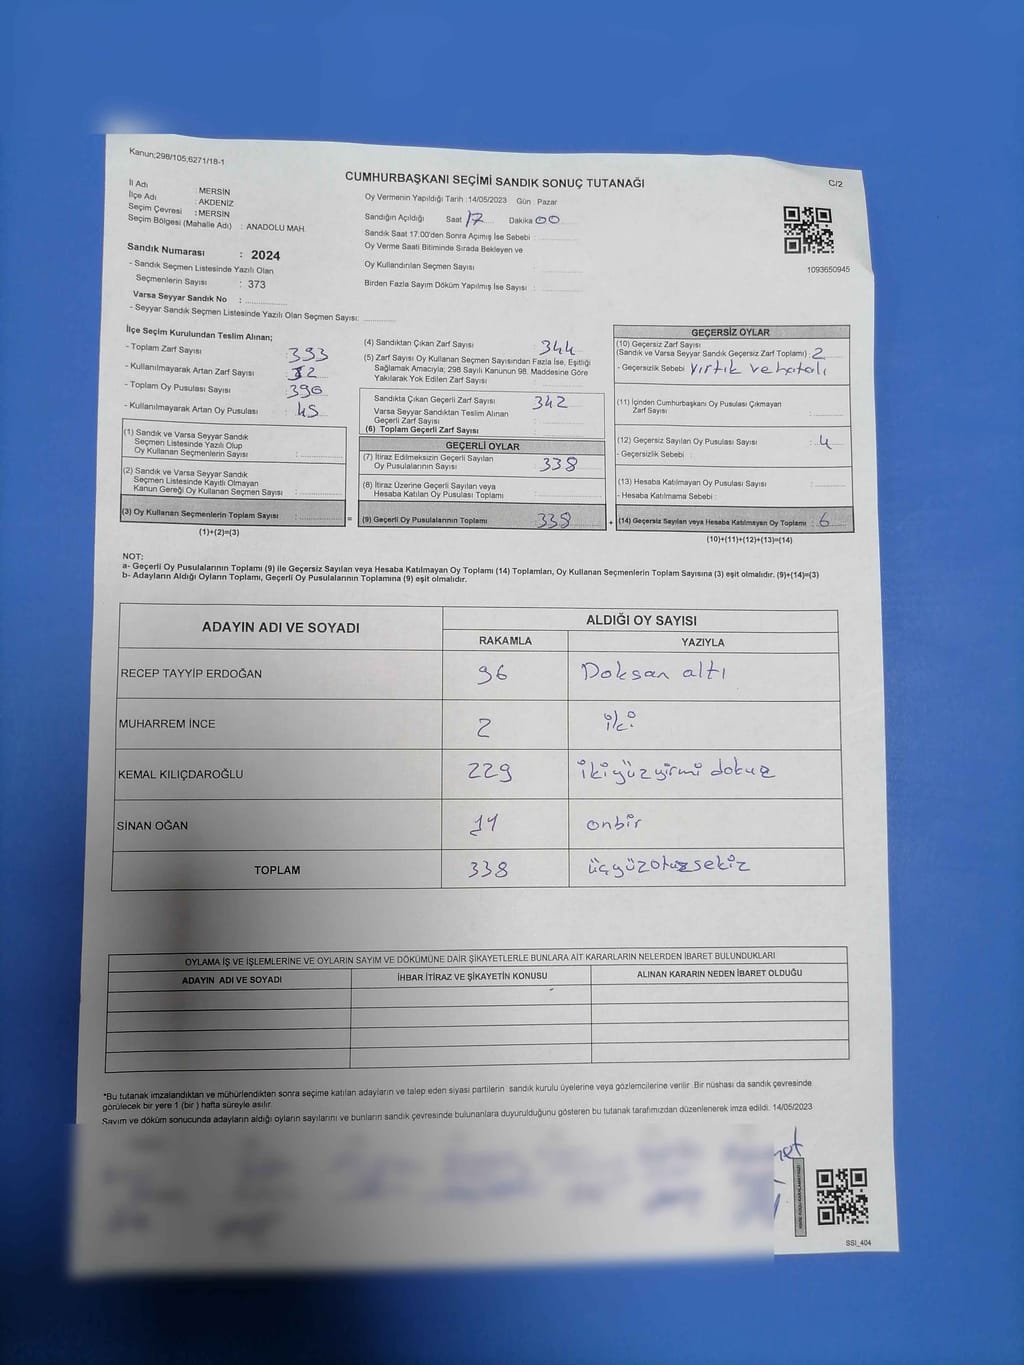 Kanun;298/105;6271/18-1
CUMHURBAŞKANI SEÇİMİ SANDIK SONUÇ TUTANAĞI
C/2
İl Adı : MERSİN
İlçe Adı : AKDENİZ
Seçim Çevresi : MERSİN
Seçim Bölgesi (Mahalle Adı) : ANADOLU MAH.
Sandık Numarası : 2024
- Sandık Seçmen Listesinde Yazılı Olan
Seçmenlerin Sayısı : 373
Varsa Seyyar Sandık No :
- Seyyar Sandık Seçmen Listesinde Yazılı Olan Seçmen Sayısı:
Oy Vermenin Yapıldığı Tarih : 14/05/2023 Gün : Pazar
Sandığın Açıldığı Saat 17 Dakika 00
Sandık Saat 17.00'den Sonra Açımış İse Sebebi :
Oy Verme Saati Bitiminde Sırada Bekleyen ve
Oy Kullandırılan Seçmen Sayısı :
Birden Fazla Sayım Döküm Yapılmış İse Sayısı :
1093650945
İlçe Seçim Kurulundan Teslim Alınan;
- Toplam Zarf Sayısı : 393
- Kullanılmayarak Artan Zarf Sayısı :
- Toplam Oy Pusulası Sayısı : 390
- Kullanılmayarak Artan Oy Pusulası : 45
(1) Sandık ve Varsa Seyyar Sandık
Seçmen Listesinde Yazılı Olup
Oy Kullanan Seçmenlerin Sayısı :
(2) Sandık ve Varsa Seyyar Sandık
Seçmen Listesinde Kayıtlı Olmayan
Kanun Gereği Oy Kullanan Seçmen Sayısı :
(3) Oy Kullanan Seçmenlerin Toplam Sayısı :
(1)+(2)=(3)
(4) Sandıktan Çıkan Zarf Sayısı : 344
(5) Zarf Sayısı Oy Kullanan Seçmen Sayısından Fazla İse, Eşitliği
Sağlamak Amacıyla; 298 Sayılı Kanunun 98. Maddesine Göre
Yakılarak Yok Edilen Zarf Sayısı :
Sandıkta Çıkan Geçerli Zarf Sayısı : 342
Varsa Seyyar Sandıktan Teslim Alınan
Geçerli Zarf Sayısı :
(6) Toplam Geçerli Zarf Sayısı :
GEÇERLİ OYLAR
(7) İtiraz Edilmeksizin Geçerli Sayılan
Oy Pusulalarının Sayısı : 338
(8) İtiraz Üzerine Geçerli Sayılan veya
Hesaba Katılan Oy Pusulası Toplamı :
= (9) Geçerli Oy Pusulalarının Toplamı : 338 +
GEÇERSİZ OYLAR
(10) Geçersiz Zarf Sayısı
(Sandık ve Varsa Seyyar Sandık Geçersiz Zarf Toplamı) : 2
- Geçersizlik Sebebi : Yırtık ve hatalı
(11) İçinden Cumhurbaşkanı Oy Pusulası Çıkmayan
Zarf Sayısı :
(12) Geçersiz Sayılan Oy Pusulası Sayısı : 4
- Geçersizlik Sebebi :
(13) Hesaba Katılmayan Oy Pusulası Sayısı :
- Hesaba Katılmama Sebebi :
(14) Geçersiz Sayılan veya Hesaba Katılmayan Oy Toplamı : 6
(10)+(11)+(12)+(13)=(14)
NOT:
a- Geçerli Oy Pusulalarının Toplamı (9) ile Geçersiz Sayılan veya Hesaba Katılmayan Oy Toplamı (14) Toplamları, Oy Kullanan Seçmenlerin Toplam Sayısına (3) eşit olmalıdır. (9)+(14)=(3)
b- Adayların Aldığı Oyların Toplamı, Geçerli Oy Pusulalarının Toplamına (9) eşit olmalıdır.
ADAYIN ADI VE SOYADI ALDIĞI OY SAYISI
RAKAMLA YAZIYLA
RECEP TAYYİP ERDOĞAN 96 Doksan altı
MUHARREM İNCE 2 iki
KEMAL KILIÇDAROĞLU 229 ikiyüzyirmi dokuz
SİNAN OĞAN 11 onbir
TOPLAM 338 üçyüzotuzsekiz
OYLAMA İŞ VE İŞLEMLERİNE VE OYLARIN SAYIM VE DÖKÜMÜNE DAİR ŞİKAYETLERLE BUNLARA AİT KARARLARIN NELERDEN İBARET BULUNDUKLARI
ADAYIN ADI VE SOYADI İHBAR İTİRAZ VE ŞİKAYETİN KONUSU ALINAN KARARIN NEDEN İBARET OLDUĞU
*Bu tutanak imzalandıktan ve mühürlendikten sonra seçime katılan adayların ve talep eden siyasi partilerin sandık kurulu üyelerine veya gözlemcilerine verilir .Bir nüshası da sandık çevresinde
görülecek bir yere 1 (bir ) hafta süreyle asılır.
Sayım ve döküm sonucunda adayların aldığı oyların sayılarını ve bunların sandık çevresinde bulunanlara duyurulduğunu gösteren bu tutanak tarafımızdan düzenlenerek imza edildi. 14/05/2023
SSI_404